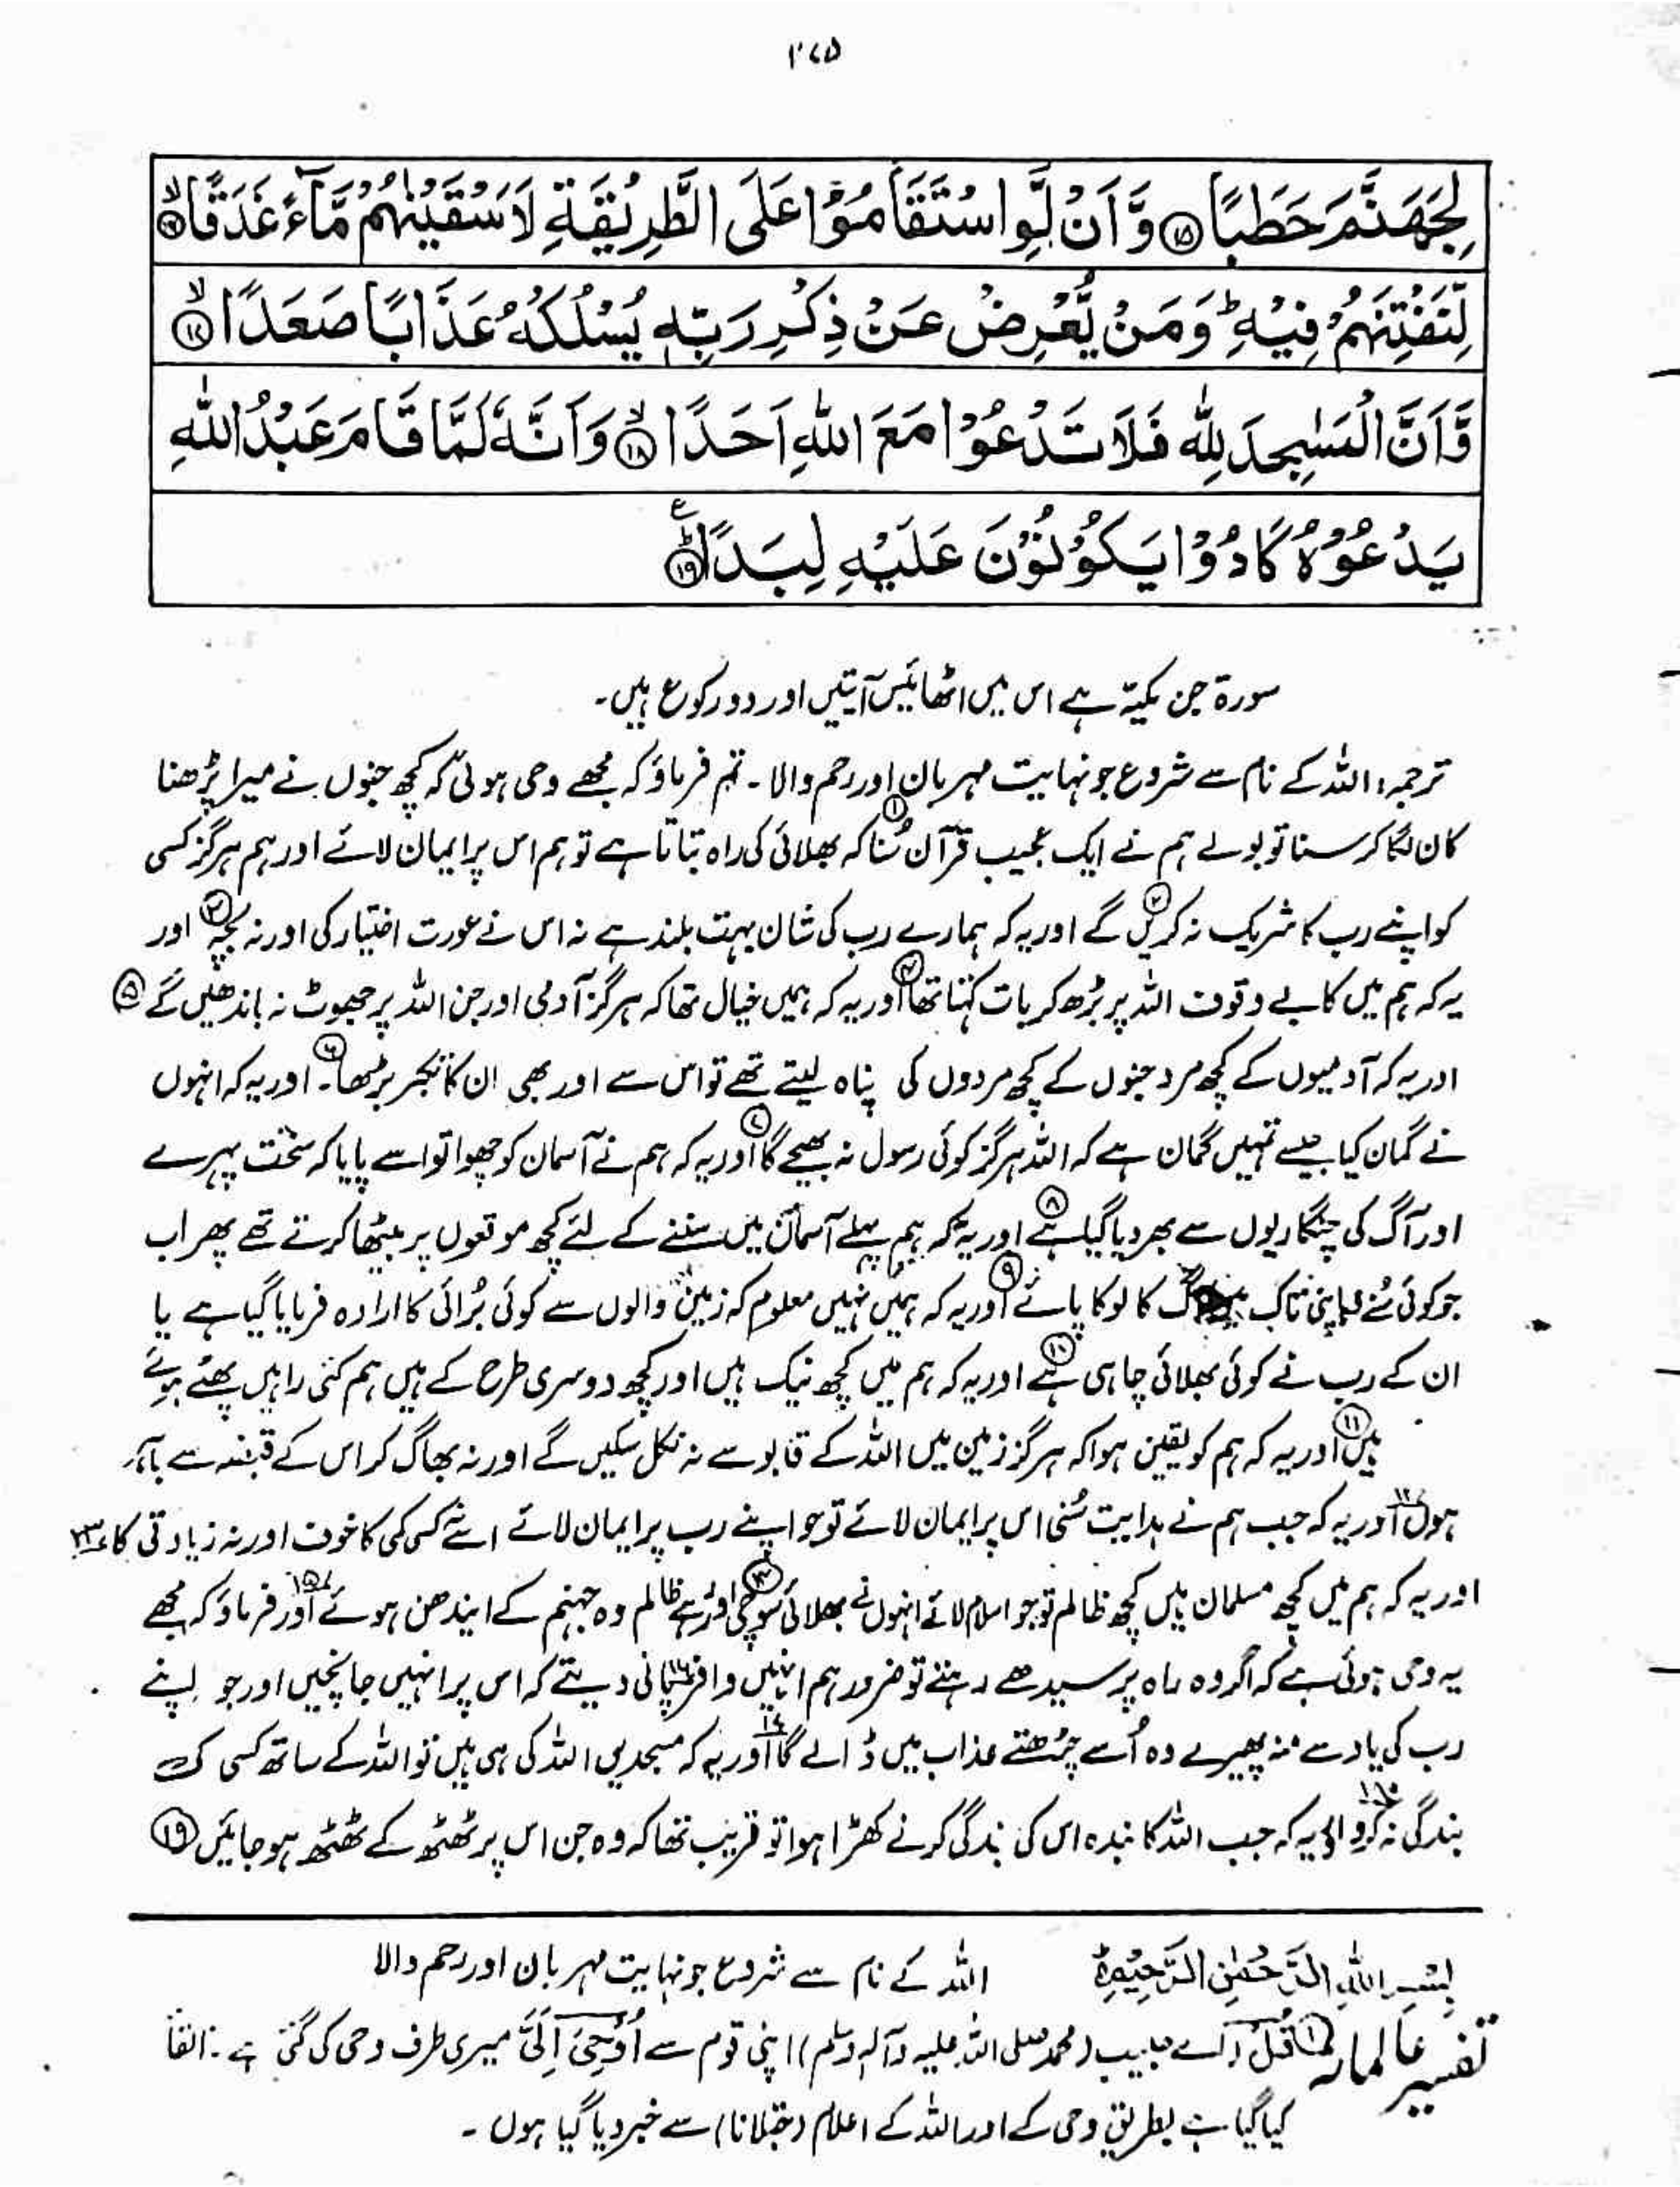 ۲۷۵
لِجَهَنَّمَ حَطَبًا ۱۵ وَّاَنْ لَّوِ اسْتَقَامُوْا عَلَى الطَّرِيْقَةِ لَاَسْقَيْنٰهُمْ مَّآءً غَدَقًا ۱۶ۙ
لِّنَفْتِنَهُمْ فِيْهِ ؕ وَمَنْ يُّعْرِضْ عَنْ ذِكْرِ رَبِّهٖ يَسْلُكْهُ عَذَابًا صَعَدًا ۱۷ۙ
وَّاَنَّ الْمَسٰجِدَ لِلّٰهِ فَلَا تَدْعُوْا مَعَ اللّٰهِ اَحَدًا ۱۸ۙ وَاَنَّهٗ لَمَّا قَامَ عَبْدُ اللّٰهِ
يَدْعُوْهُ كَادُوْا يَكُوْنُوْنَ عَلَيْهِ لِبَدًا ۱۹ؕ ع
سورۃ جن مکیّہ ہے اس میں اٹھائیس آیتیں اور دو رکوع ہیں۔
ترجمہ: اللہ کے نام سے شروع جو نہایت مہربان اور رحم والا۔ تم فرماؤ کہ مجھے وحی ہوئی کہ کچھ جنوں نے میرا پڑھنا
کان لگا کر سنا تو بولے ہم نے ایک عجیب قرآن سُنا ۱ کہ بھلائی کی راہ بتاتا ہے تو ہم اس پر ایمان لائے اور ہم ہرگز کسی
کو اپنے رب کا شریک نہ کریں گے ۲ اور یہ کہ ہمارے رب کی شان بہت بلند ہے نہ اس نے عورت اختیار کی اور نہ بچہ ۳ اور
یہ کہ ہم میں کا بے وقوف اللہ پر بڑھ کر بات کہتا تھا ۴ اور یہ کہ ہمیں خیال تھا کہ ہرگز آدمی اور جن اللہ پر جھوٹ نہ باندھیں گے ۵
اور یہ کہ آدمیوں کے کچھ مرد جنوں کے کچھ مردوں کی پناہ لیتے تھے تو اس سے اور بھی ان کا تکبر بڑھا ۶۔ اور یہ کہ انہوں
نے گمان کیا جیسے تمہیں گمان ہے کہ اللہ ہرگز کوئی رسول نہ بھیجے گا ۷ اور یہ کہ ہم نے آسمان کو چھوا تو اسے پایا کہ سخت پہرے
اور آگ کی چنگاریوں سے بھر دیا گیا ہے ۸ اور یہ کہ ہم پہلے آسمان میں سننے کے لئے کچھ موقعوں پر بیٹھا کرتے تھے پھر اب
جو کوئی سُنے وہ اپنی تاک میں آگ کا لوکا پائے ۹ اور یہ کہ ہمیں نہیں معلوم کہ زمین والوں سے کوئی بُرائی کا ارادہ فرمایا گیا ہے یا
ان کے رب نے کوئی بھلائی چاہی ہے ۱۰ اور یہ کہ ہم میں کچھ نیک ہیں اور کچھ دوسری طرح کے ہیں ہم کئی راہیں پھٹے ہوئے
ہیں ۱۱ اور یہ کہ ہم کو یقین ہوا کہ ہرگز زمین میں اللہ کے قابو سے نہ نکل سکیں گے اور نہ بھاگ کر اس کے قبضہ سے باہر
ہوں ۱۲ اور یہ کہ جب ہم نے ہدایت سُنی اس پر ایمان لائے تو جو اپنے رب پر ایمان لائے اسے نہ کسی کمی کا خوف اور نہ زیادتی کا ۱۳
اور یہ کہ ہم میں کچھ مسلمان ہیں کچھ ظالم تو جو اسلام لائے انہوں نے بھلائی سوچی ۱۴ اور رہے ظالم وہ جہنم کے ایندھن ہوئے ۱۵ اور فرماؤ کہ مجھے
یہ وحی ہوئی ہے کہ اگر وہ راہ پر سیدھے رہتے تو ضرور ہم انہیں وافر پانی دیتے ۱۶ کہ اس پر انہیں جانچیں اور جو اپنے
رب کی یاد سے منہ پھیرے وہ اُسے چڑھتے عذاب میں ڈالے گا ۱۷ اور یہ کہ مسجدیں اللہ کی ہی ہیں تو اللہ کے ساتھ کسی کی
بندگی نہ کرو ۱۸ اور یہ کہ جب اللہ کا بندہ اس کی بندگی کرنے کھڑا ہوا تو قریب تھا کہ وہ جن اس پر ٹھٹھ کے ٹھٹھ ہو جائیں ۱۹
بِسْمِ اللّٰهِ الرَّحْمٰنِ الرَّحِيْمِ اللہ کے نام سے شروع جو نہایت مہربان اور رحم والا
تفسیر عالمانہ ۱ قُلْ (اے حبیب (محمد صلی اللہ علیہ وآلہ وسلم) اپنی قوم سے اُوْحِیَ اِلَیَّ میری طرف وحی کی گئی ہے۔ القا
کیا گیا ہے بطریق وحی کے اور اللہ کے اعلام (جتلانا) سے خبر دیا گیا ہوں۔